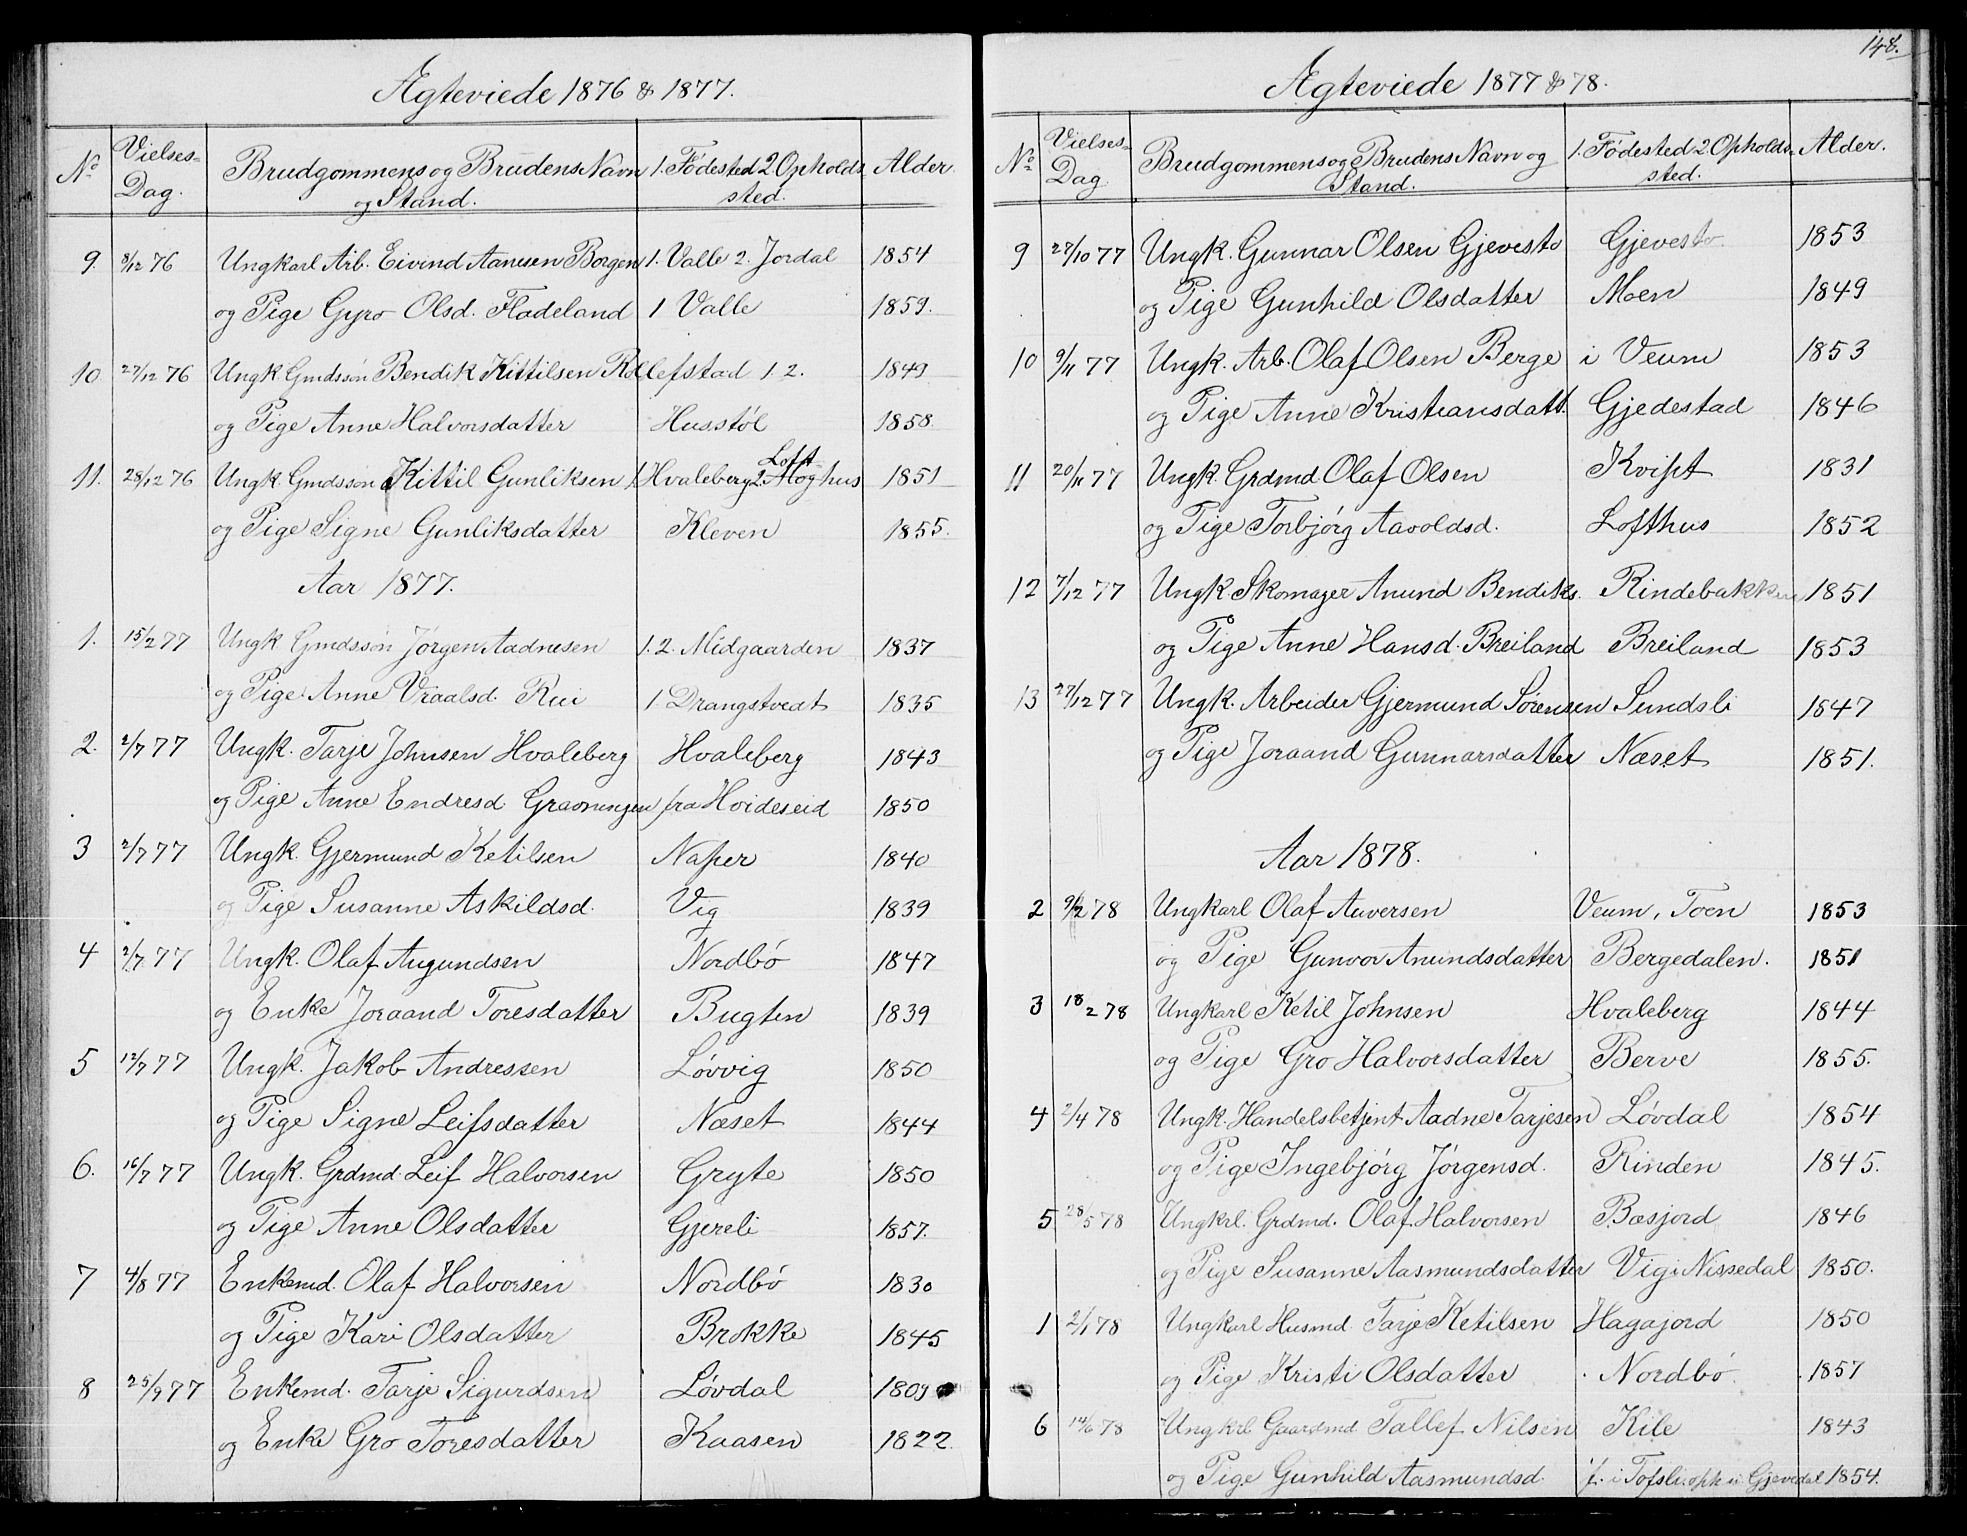 Ægteviede 1876 & 1877.
No Vielses- Dag. Brudgommens og Brudens Navn og Stand. 1. Födested 2. Opholdssted. Alder.
9. 8/12 76 Ungkarl Arb. Eivind Aanesen Borgen 1. Valle 2. Jordal 1854
og Pige Gyro Olsd. Fladeland 1 Valle 1859.
10 27/12 76 Ungk. Gmdssøn Bendik Kittilsen Rollefstad 1 2. 1849
og Pige Anne Halvorsdatter Husstøl 1858
11. 28/12 76 Ungk. Gmdssøn Kittil Gunliksen 1. Hvaleberg 2. Lofthus 1851
og Pige Signe Gunliksdatter Kleven 1855.
Aar 1877.
1. 15/2 77 Ungk Gmdssøn Jørgen Aadnesen 1. 2. Midgaarden 1837
og Pige Anne Vraalsd. Rui 1 Drangstvedt 1835
2. 2/7 77 Ungk. Tarje Johnsen Hvaleberg Hvaleberg 1843
og Pige Anne Endresd. Gravningen fra Hvideseid 1850
3 2/7 77 Ungk. Gjermund Ketilsen Naper 1840
og Pige Susanne Askildsd. Vig 1839
4 2/7 77 Ungk. Olaf Augundsen Nordbö 1847
og Enke Joraand Toresdatter Bugten 1839
5 12/7 77 Ungk. Jakob Andressen Løvvig 1850
og Pige Signe Leifsdatter Næset 1844
6. 16/7 77 Ungk. Grdmd. Leif Halvorsen Gryte 1850
og Pige Anne Olsdatter Gjereli 1857.
7 4/8 77 Enkemd. Olaf Halvorsen Nordbö 1830
og Pige Kari Olsdatter Brokke 1845
8 25/9 77 Enkemd. Tarje Sigurdsen Løvdal 1809
og Enke Gro Toresdatter Kaasen 1822
148.
Ægteviede 1877 & 78.
No Vielses- Dag Brudgommens og Brudens Navn og Stand. 1. Födested 2. Opholdssted. Alder.
9 27/10 77 Ungk. Gunnar Olsen Gjevesto Gjevesto 1853
og Pige Gunhild Olsdatter Moen 1849
10 9/11 77 Ungk. Arb. Olaf Olsen Berge i Veum 1853
og Pige Anne Kristiansdatt. Gjedestad 1846
11 20/11 77 Ungk. Grdmd. Olaf Olsen Kvist 1831
og Pige Torbjörg Aavoldsd. Lofthus 1852
12 7/12 77 Ungk. Skomager Anund Bendiks. Rindebakken 1851
og Pige Anne Hansd. Breiland Breiland 1853
13 27/12 77 Ungk. Arbeider Gjermund Sørensen Sundsli 1847
og Pige Joraand Gunnarsdatter Næset 1851.
Aar 1878.
2 9/2 78 Ungkarl Olaf Auversen Veum, Toen 1853
og Pige Gunvor Anundsdatter Bergedalen. 1851
3 18/2 78 Ungkarl Ketil Johnsen Hvaleberg 1844
og Pige Gro Halvorsdatter Berve 1855.
4 2/4 78 Ungk. Handelsbetjent Aadne Tarjesen Løvdal 1854
og Pige Ingebjörg Jörgensd. Rinden 1845.
5 28/5 78 Ungkrl. Grdmd. Olaf Halvorsen Bæsjord 1846
og Pige Susanne Aasmundsdatter Vig i Nissedal 1850.
1 2/1 78 Ungkarl Husmd. Tarje Ketilsen Hagajord 1850
og Pige Kristi Olsdatter Nordbö 1857
6 14/6 78 Ungkrl Gaardmd. Tallef Nilsen Kile 1843
og Pige Gunhild Aasmundsd. f. i Tofsli. oph. i Gjevedal 1854.